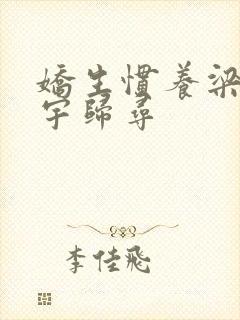 嬌生慣養梁
宇歸尋
李佳飛